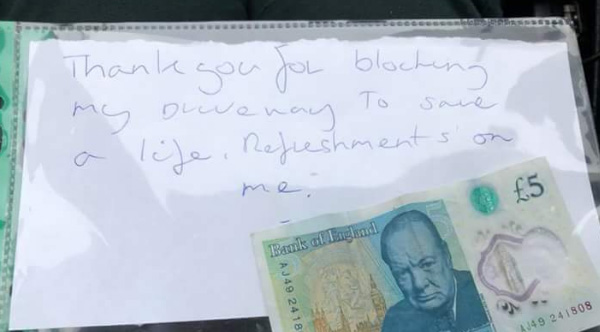 Thank you for blocking
my Driveway To save
a life. Refreshments on
me.
£5
Bank of England
AJ49 2418
AJ49 241808